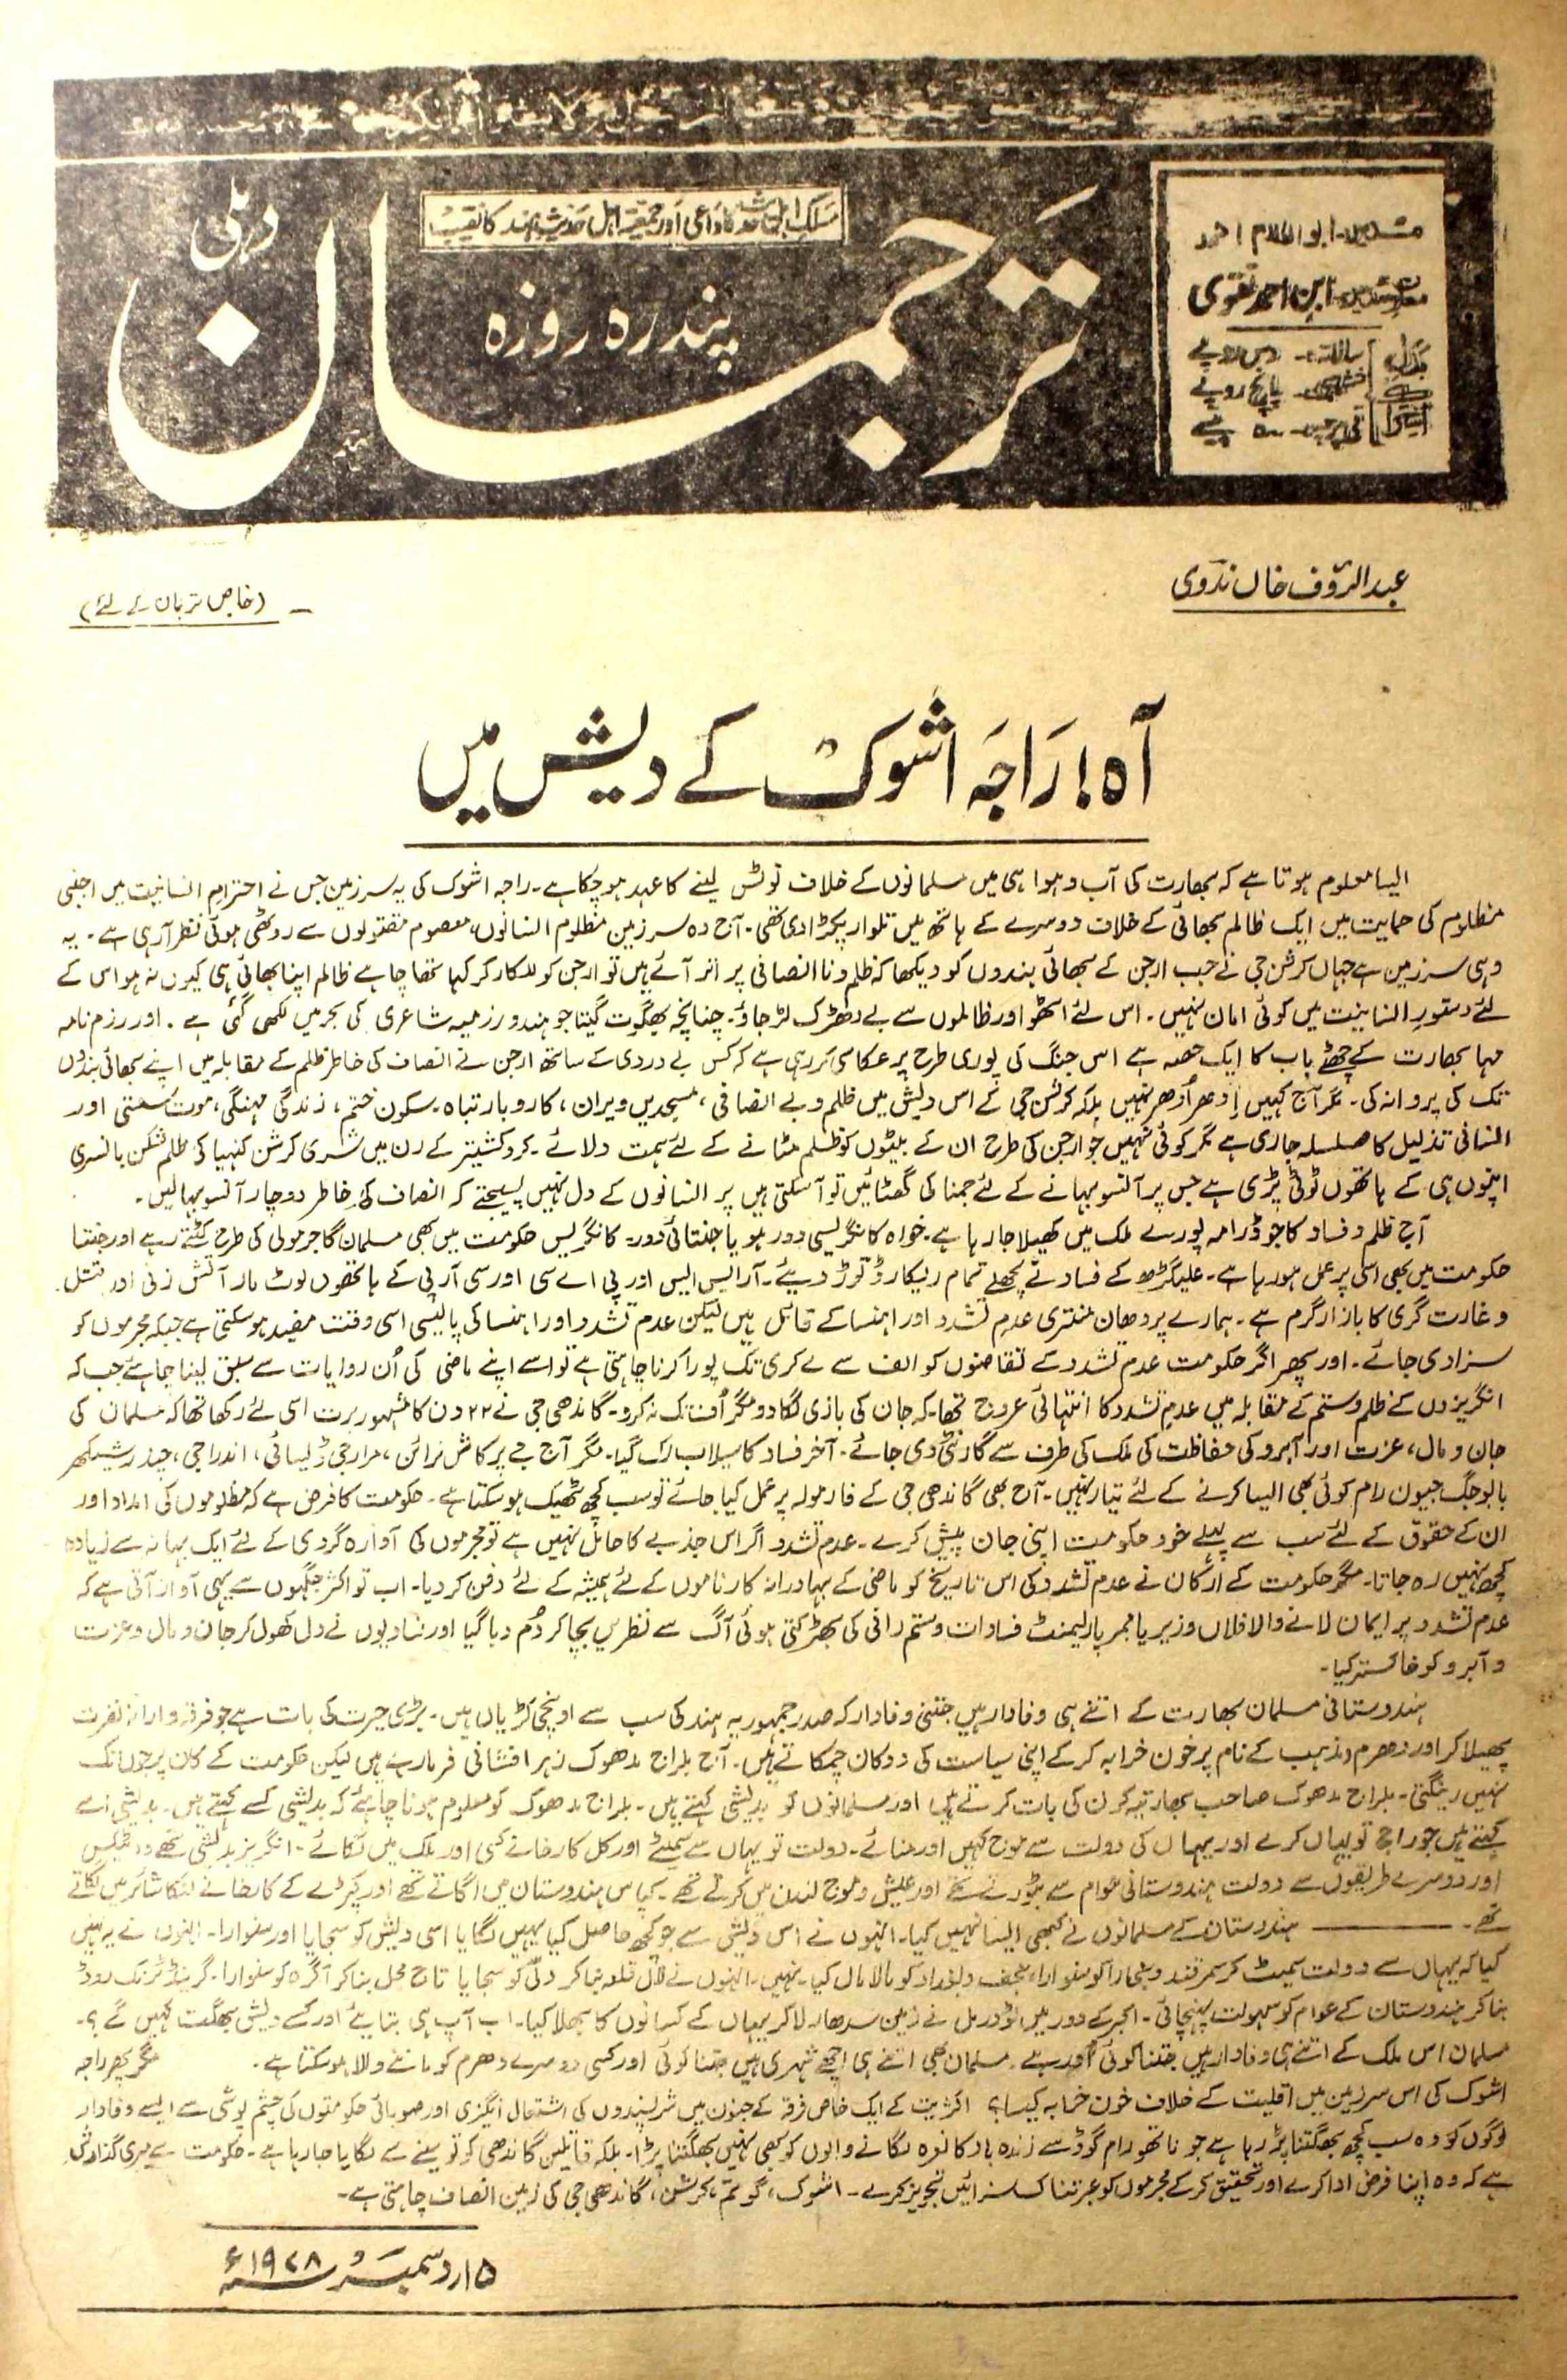 مسلک اہلحدیث کا داعی اور جمعیۃ اہل حدیث ہند کا نقیب
ترجمان
دہلی
پندرہ روزہ
مدیر ابو الکلام احمد
معاون مدیر ابن احمد نقوی
بدل سالانہ:۔ دس روپے
ششماہی:۔ پانچ روپے
اشتراک فی پرچہ:۔ ۵۰ پیسے
عبد الرؤف خاں ندوی
(خاص ترجمان کے لئے)
آہ! راجہ اشوک کے دیش میں
ایسا معلوم ہوتا ہے کہ بھارت کی آب و ہوا ہی میں مسلمانوں کے خلاف نوٹس لینے کا عہد ہو چکا ہے۔ راجہ اشوک کی یہ سرزمین جس نے احترام انسانیت میں اجنبی
مظلوم کی حمایت میں ایک ظالم بھائی کے خلاف دوسرے کے ہاتھ میں تلوار پکڑا دی تھی۔ آج وہ سرزمین مظلوم انسانوں، معصوم مقتولوں سے روٹھی ہوئی نظر آ رہی ہے۔ یہ
وہی سرزمین ہے جہاں کرشن جی نے جب ارجن کے بھائی بندوں کو دیکھا کہ ظلم و نا انصافی پر اتر آئے ہیں تو ارجن کو للکار کر کہا تھا چاہے ظالم اپنا بھائی ہی کیوں نہ ہو اس کے
لئے دستور انسانیت میں کوئی امان نہیں۔ اس لئے اٹھو اور ظالموں سے بے دھڑک لڑ جاؤ۔ چنانچہ بھگوت گیتا جو ہندو رزمیہ شاعری کی بحر میں لکھی گئی ہے۔ اور رزم نامہ
مہا بھارت کے چھٹے باب کا ایک حصہ ہے اس جنگ کی پوری طرح پر عکاسی کر رہی ہے کہ کس بے دردی کے ساتھ ارجن نے انصاف کی خاطر ظلم کے مقابلہ میں اپنے بھائی بندوں
تک کی پروا نہ کی۔ مگر آج کہیں اِدھر اُدھر نہیں بلکہ کرشن جی کے اس دیش میں ظلم و بے انصافی، مسجدیں ویران، کاروبار تباہ۔ سکون ختم، زندگی مہنگی، موت سستی اور
انسانی تذلیل کا سلسلہ جاری ہے مگر کوئی نہیں جو ارجن کی طرح ان کے بیٹوں کو ظلم مٹانے کے لئے ہمت دلائے۔ کروکشیتر کے رن میں شری کرشن کنہیا کی ظلم شکن بانسری
اپنوں ہی کے ہاتھوں ٹوٹی پڑی ہے جس پر آنسو بہانے کے لئے جمنا کی گھٹائیں تو آ سکتی ہیں پر انسانوں کے دل نہیں پسیجتے کہ انصاف کی خاطر دو چار آنسو بہا لیں۔
آج ظلم و فساد کا جو ڈرامہ پورے ملک میں کھیلا جا رہا ہے۔ خواہ کانگریسی دور ہو یا جنتائی دور۔ کانگریس حکومت میں بھی مسلمان گاجر مولی کی طرح کٹتے رہے اور جنتا
حکومت میں بھی اسی پر عمل ہو رہا ہے۔ علیگڑھ کے فساد نے پچھلے تمام ریکارڈ توڑ دیئے۔ آر ایس ایس اور پی اے سی اور سی آر پی کے ہاتھوں لوٹ مار آتش زنی اور قتل
و غارت گری کا بازار گرم ہے۔ ہمارے پردھان منتری عدم تشدد اور اہنسا کے قائل ہیں لیکن عدم تشدد اور اہنسا کی پالیسی اسی وقت مفید ہو سکتی ہے جبکہ مجرموں کو
سزا دی جائے۔ اور پھر اگر حکومت عدم تشدد کے تقاضوں کو الف سے لے کر ی تک پورا کرنا چاہتی ہے تو اسے اپنے ماضی کی اُن روایات سے سبق لینا چاہئے جب کہ
انگریزوں کے ظلم و ستم کے مقابلہ میں عدم تشدد کا انتہائی عروج تھا۔ کہ جان کی بازی لگا دو مگر اُف تک نہ کرو۔ گاندھی جی نے ۲۲ دن کا مشہور برت اسی لئے رکھا تھا کہ مسلمان کی
جان و مال، عزت اور آبرو کی حفاظت کی ملک کی طرف سے گارنٹی دی جائے۔ آخر فساد کا سیلاب رک گیا۔ مگر آج جے پرکاش نرائن، مرارجی ڈیسائی، اندرا جی، چندر شیکھر
بابو جگ جیون رام کوئی بھی ایسا کرنے کے لئے تیار نہیں۔ آج بھی گاندھی جی کے فارمولہ پر عمل کیا جائے تو سب کچھ ٹھیک ہو سکتا ہے۔ حکومت کا فرض ہے کہ مظلوموں کی امداد اور
ان کے حقوق کے لئے سب سے پہلے خود حکومت اپنی جان پیش کرے۔ عدم تشدد اگر اس جذبے کا حامل نہیں ہے تو مجرموں کی آوارہ گردی کے لئے ایک بہانہ سے زیادہ
کچھ نہیں رہ جاتا۔ مگر حکومت کے ارکان نے عدم تشدد کی اس تاریخ کو ماضی کے بہادرانہ کارناموں کے لئے ہمیشہ کے لئے دفن کر دیا۔ اب تو اکثر جگہوں سے یہی آواز آتی ہے کہ
عدم تشدد پر ایمان لانے والا فلاں وزیر یا ممبر پارلیمنٹ فسادات و ستم رانی کی بھڑکتی ہوئی آگ سے نظریں بچا کر دُم دبا گیا اور فسادیوں نے دل کھول کر جان و مال و عزت
و آبرو کو خاکستر کیا۔
ہندوستانی مسلمان بھارت کے اتنے ہی وفادار ہیں جتنی وفادار کہ صدر جمہوریہ ہند کی سب سے اونچی کڑیاں ہیں۔ بڑی حیرت کی بات ہے جو فرقہ وارانہ نفرت
پھیلا کر اور دھرم و مذہب کے نام پر خون خرابہ کر کے اپنی سیاست کی دوکان چمکاتے ہیں۔ آج بلراج مدھوک زہر افشانی فرما رہے ہیں لیکن حکومت کے کان پر جوں تک
نہیں رینگتی۔ بلراج مدھوک صاحب بھارتیہ کرن کی بات کرتے ہیں اور مسلمانوں کو بدیشی کہتے ہیں۔ بلراج مدھوک کو معلوم ہونا چاہئے کہ بدیشی کسے کہتے ہیں۔ بدیشی اسے
کہتے ہیں جو راج تو یہاں کرے اور یہاں کی دولت سے موج کہیں اور منائے۔ دولت تو یہاں سے سمیٹے اور کل کارخانے کسی اور ملک میں لگائے۔ انگریز بدیشی تھے وہ ٹیکس
اور دوسرے طریقوں سے دولت ہندوستانی عوام سے بٹورتے تھے اور عیش و موج لندن میں کرتے تھے۔ کپاس ہندوستان میں اگاتے تھے اور کپڑے کے کارخانے لنکا شائر میں لگاتے
تھے۔ ——— ہندوستان کے مسلمانوں نے کبھی ایسا نہیں کیا۔ انہوں نے اس دیش سے جو کچھ حاصل کیا یہیں لگایا اسی دیش کو سجایا اور سنوارا۔ انہوں نے یہ نہیں
کیا کہ یہاں سے دولت سمیٹ کر سمرقند و بخارا کو سنوارا، نجف و بغداد کو مالا مال کیا۔ نہیں۔ انہوں نے لال قلعہ بنا کر دلّی کو سجایا تاج محل بنا کر آگرہ کو سنوارا۔ گرینڈ ٹرنک روڈ
بنا کر ہندوستان کے عوام کو سہولت پہنچائی۔ اکبر کے دور میں ٹوڈرمل نے زمین سدھار لا کر یہاں کے کسانوں کا بھلا کیا۔ اب آپ ہی بتایئے اور کسے دیش بھگت کہیں گے؟۔
مسلمان اس ملک کے اتنے ہی وفادار ہیں جتنا کوئی اور ہے۔ مسلمان بھی اتنے ہی اچھے شہری ہیں جتنا کوئی اور کسی دوسرے دھرم کو ماننے والا ہو سکتا ہے۔ مگر پھر راجہ
اشوک کی اس سرزمین میں اقلیت کے خلاف خون خرابہ کیسا؟ اکثریت کے ایک خاص فرقہ کے جنون میں شر پسندوں کی اشتعال انگیزی اور صوبائی حکومتوں کی چشم پوشی سے ایسے وفادار
لوگوں کو وہ سب کچھ بھگتنا پڑ رہا ہے جو ناتھو رام گوڈسے زندہ باد کا نعرہ لگانے والوں کو بھی نہیں بھگتنا پڑا۔ بلکہ قاتلین گاندھی کو تو سینے سے لگایا جا رہا ہے۔ حکومت سے میری گذارش
ہے کہ وہ اپنا فرض ادا کرے اور تحقیق کر کے مجرموں کو عبرتناک سزائیں تجویز کرے۔ اشوک، گوتم، کرشن، گاندھی جی کی زمین انصاف چاہتی ہے۔
۱۵ر دسمبر ۱۹۷۸ء